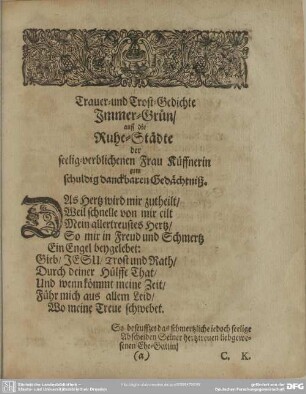 Trauer-und Trost-Gedichte
Immer-Grün/
auß die
Ruhe-Städte
der
seelig-verblichenen Frau Küffnerin
zum
schuldig danckbaren Gedächtniß.
DAs Hertz wird mir zutheilt/
Weil schnelle von mir eilt
Mein allertreustes Hertz/
So mir in Freud und Schmertz
Ein Engel beygelebet:
Gieb/ JESU/ Trost und Rath/
Durch deiner Hülffe That/
Und wenn kömmt meine Zeit/
Führ mich aus allem Leid/
Wo meine Treue schwebet.
So beseuffzet das schmertzliche iedoch seelige
Abscheiden Seiner hertztreuen liebgewe-
senen Ehe-
(a)
C. K.
Sächsische Landesbibliothek -
Staats- und Universitätsbibliothek Dresden
gefördert von der
Deutschen Forschungsgemeinschaft
DFG